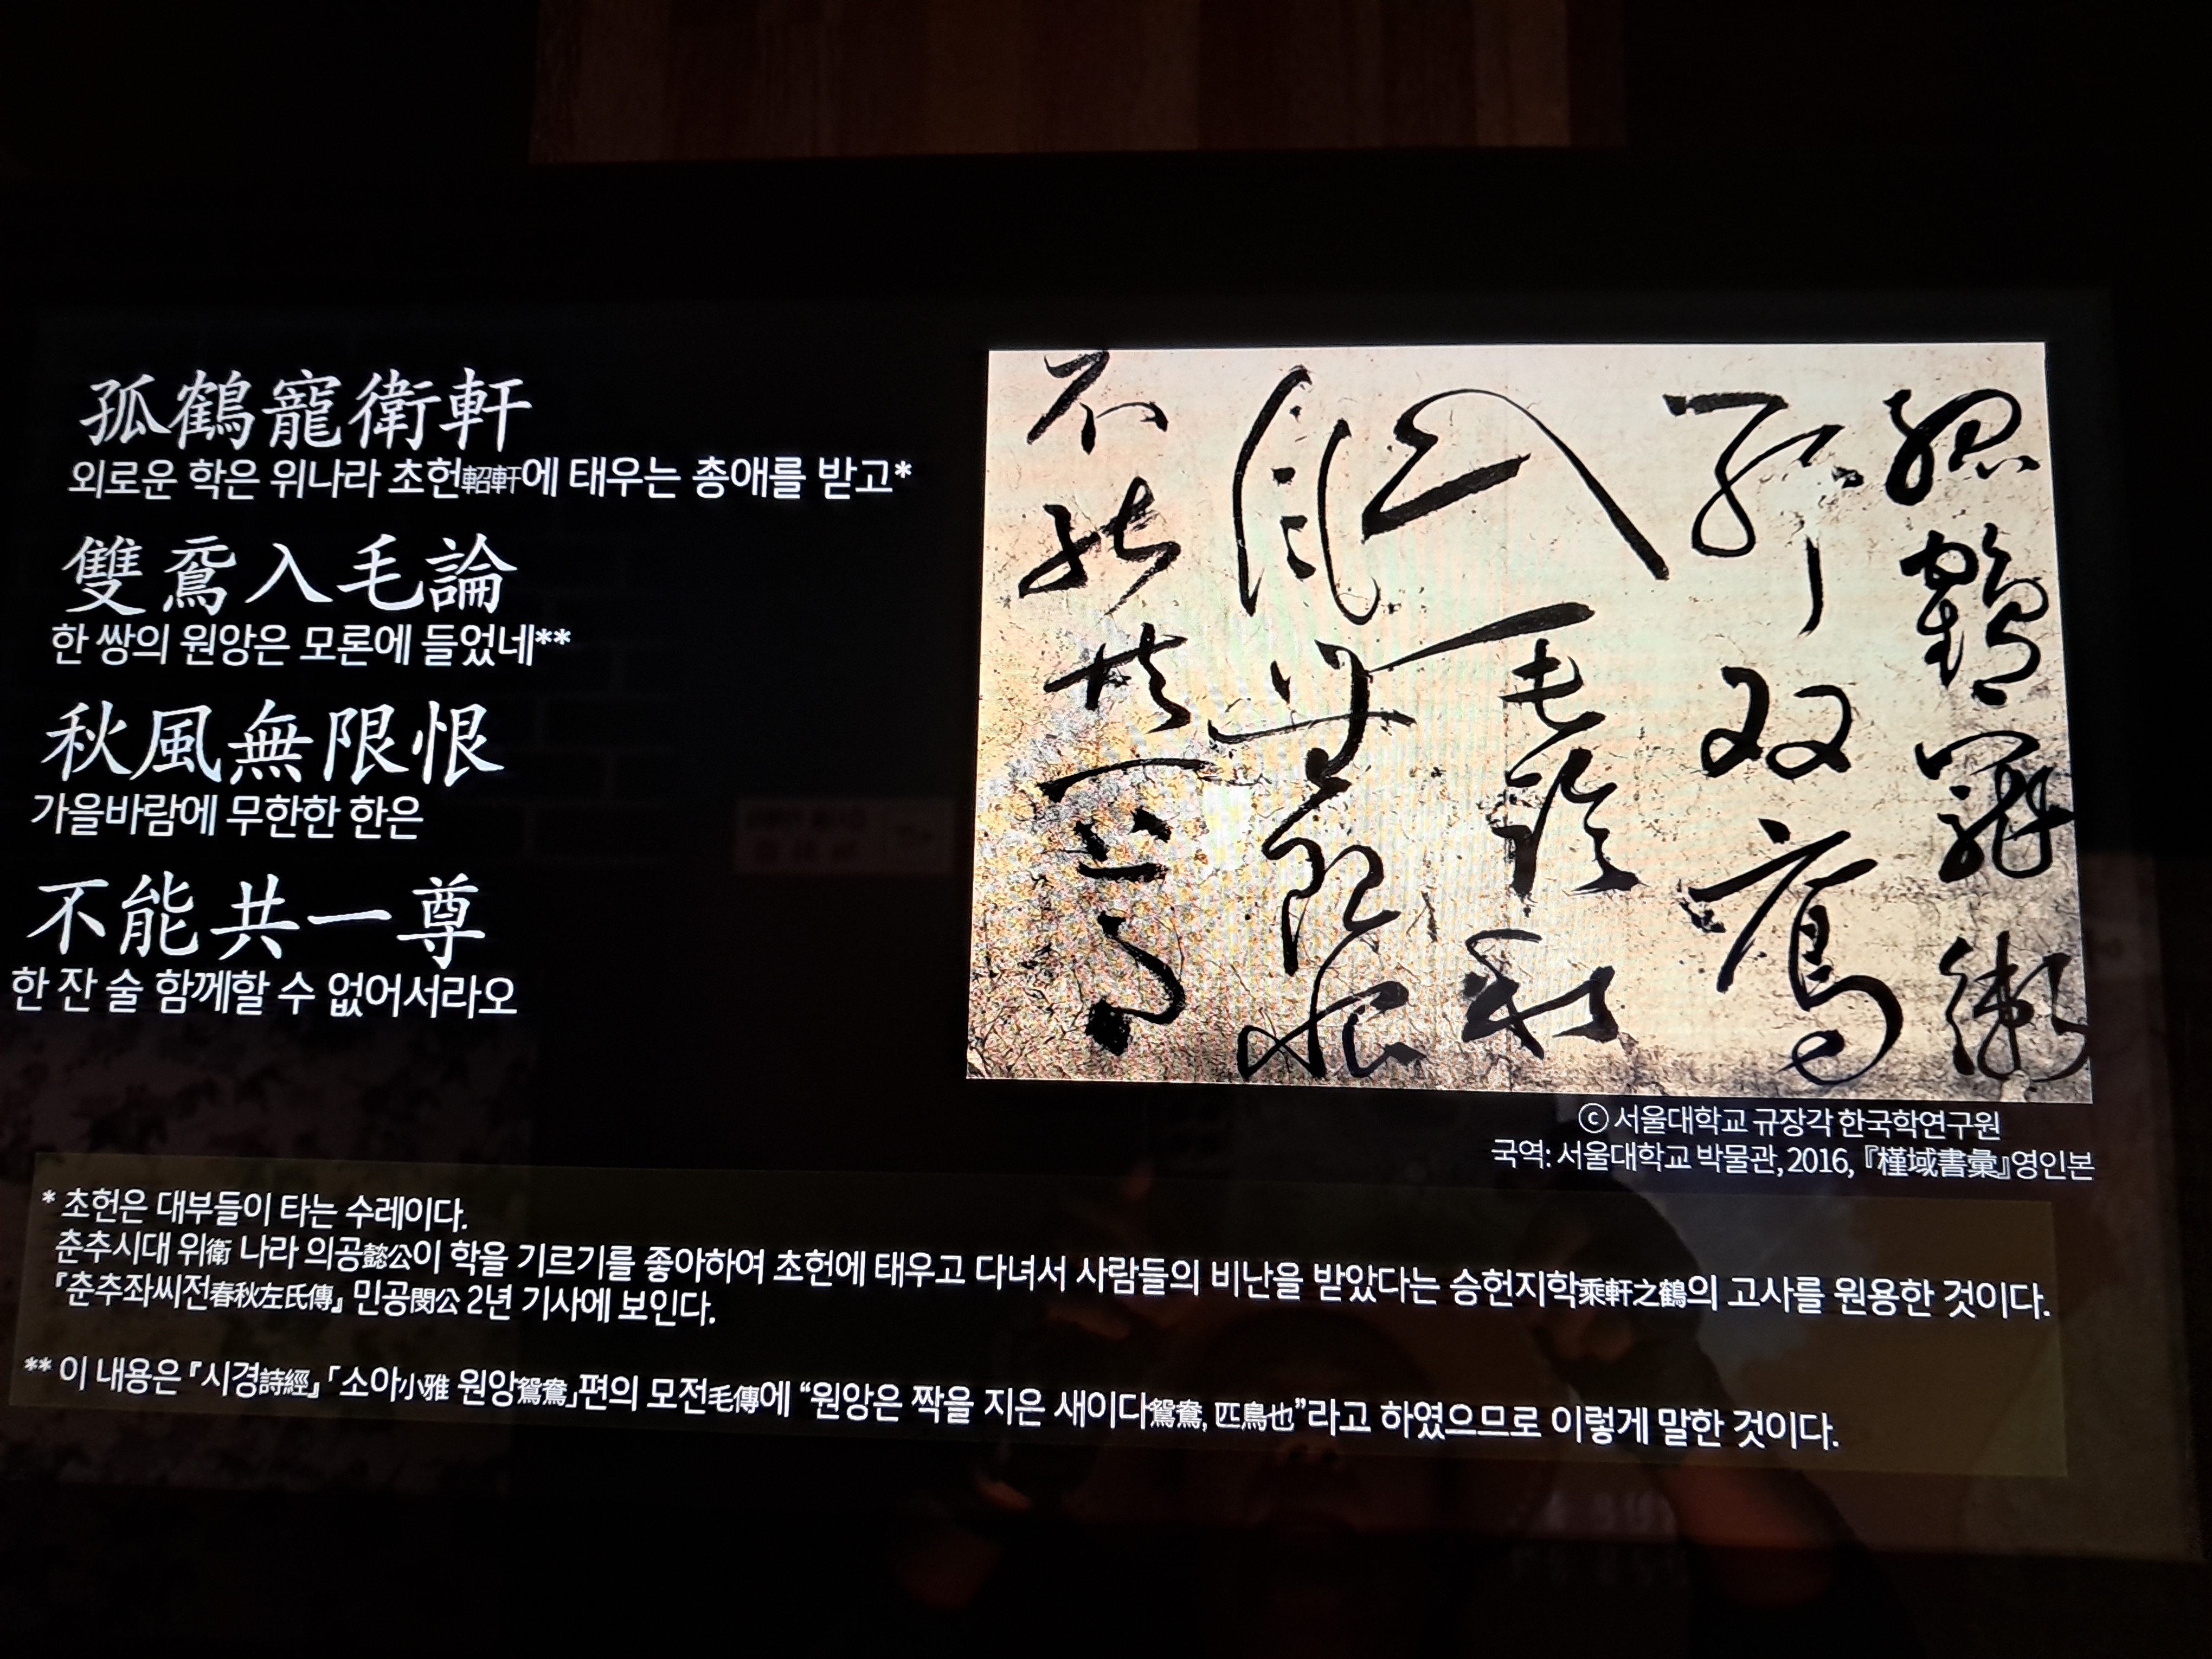 孤鶴寵衛軒
외로운 학은 위나라 초헌軺軒에 태우는 총애를 받고*
雙鵉入毛論
한 쌍의 원앙은 모론에 들었네**
秋風無限恨
가을바람에 무한한 한은
不能共一尊
한 잔 술 함께할 수 없어서라오
ⓒ 서울대학교 규장각 한국학연구원
국역: 서울대학교 박물관, 2016, 『槿域書彙』영인본
* 초헌은 대부들이 타는 수레이다.
춘추시대 위衛 나라 의공懿公이 학을 기르기를 좋아하여 초헌에 태우고 다녀서 사람들의 비난을 받았다는 승헌지학乘軒之鶴의 고사를 원용한 것이다.
『춘추좌씨전春秋左氏傳』 민공閔公 2년 기사에 보인다.
** 이 내용은 『시경詩經』 「소아小雅 원앙鴛鴦」편의 모전毛傳에 “원앙은 짝을 지은 새이다鴛鴦, 匹鳥也”라고 하였으므로 이렇게 말한 것이다.